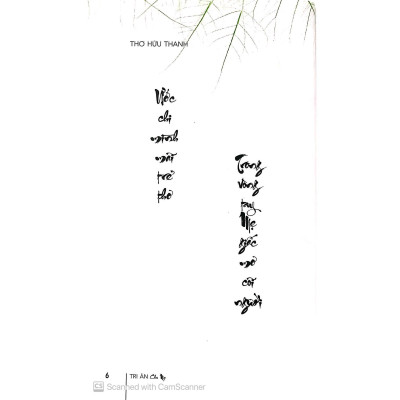 THƠ HỮU THANH
Ước
chi
mình
mãi
trẻ
thơ
Trong
vòng
tay
Mẹ
giấc
mơ
cõi
người
6
TRI ÂN
CS Scanned with CamScanner